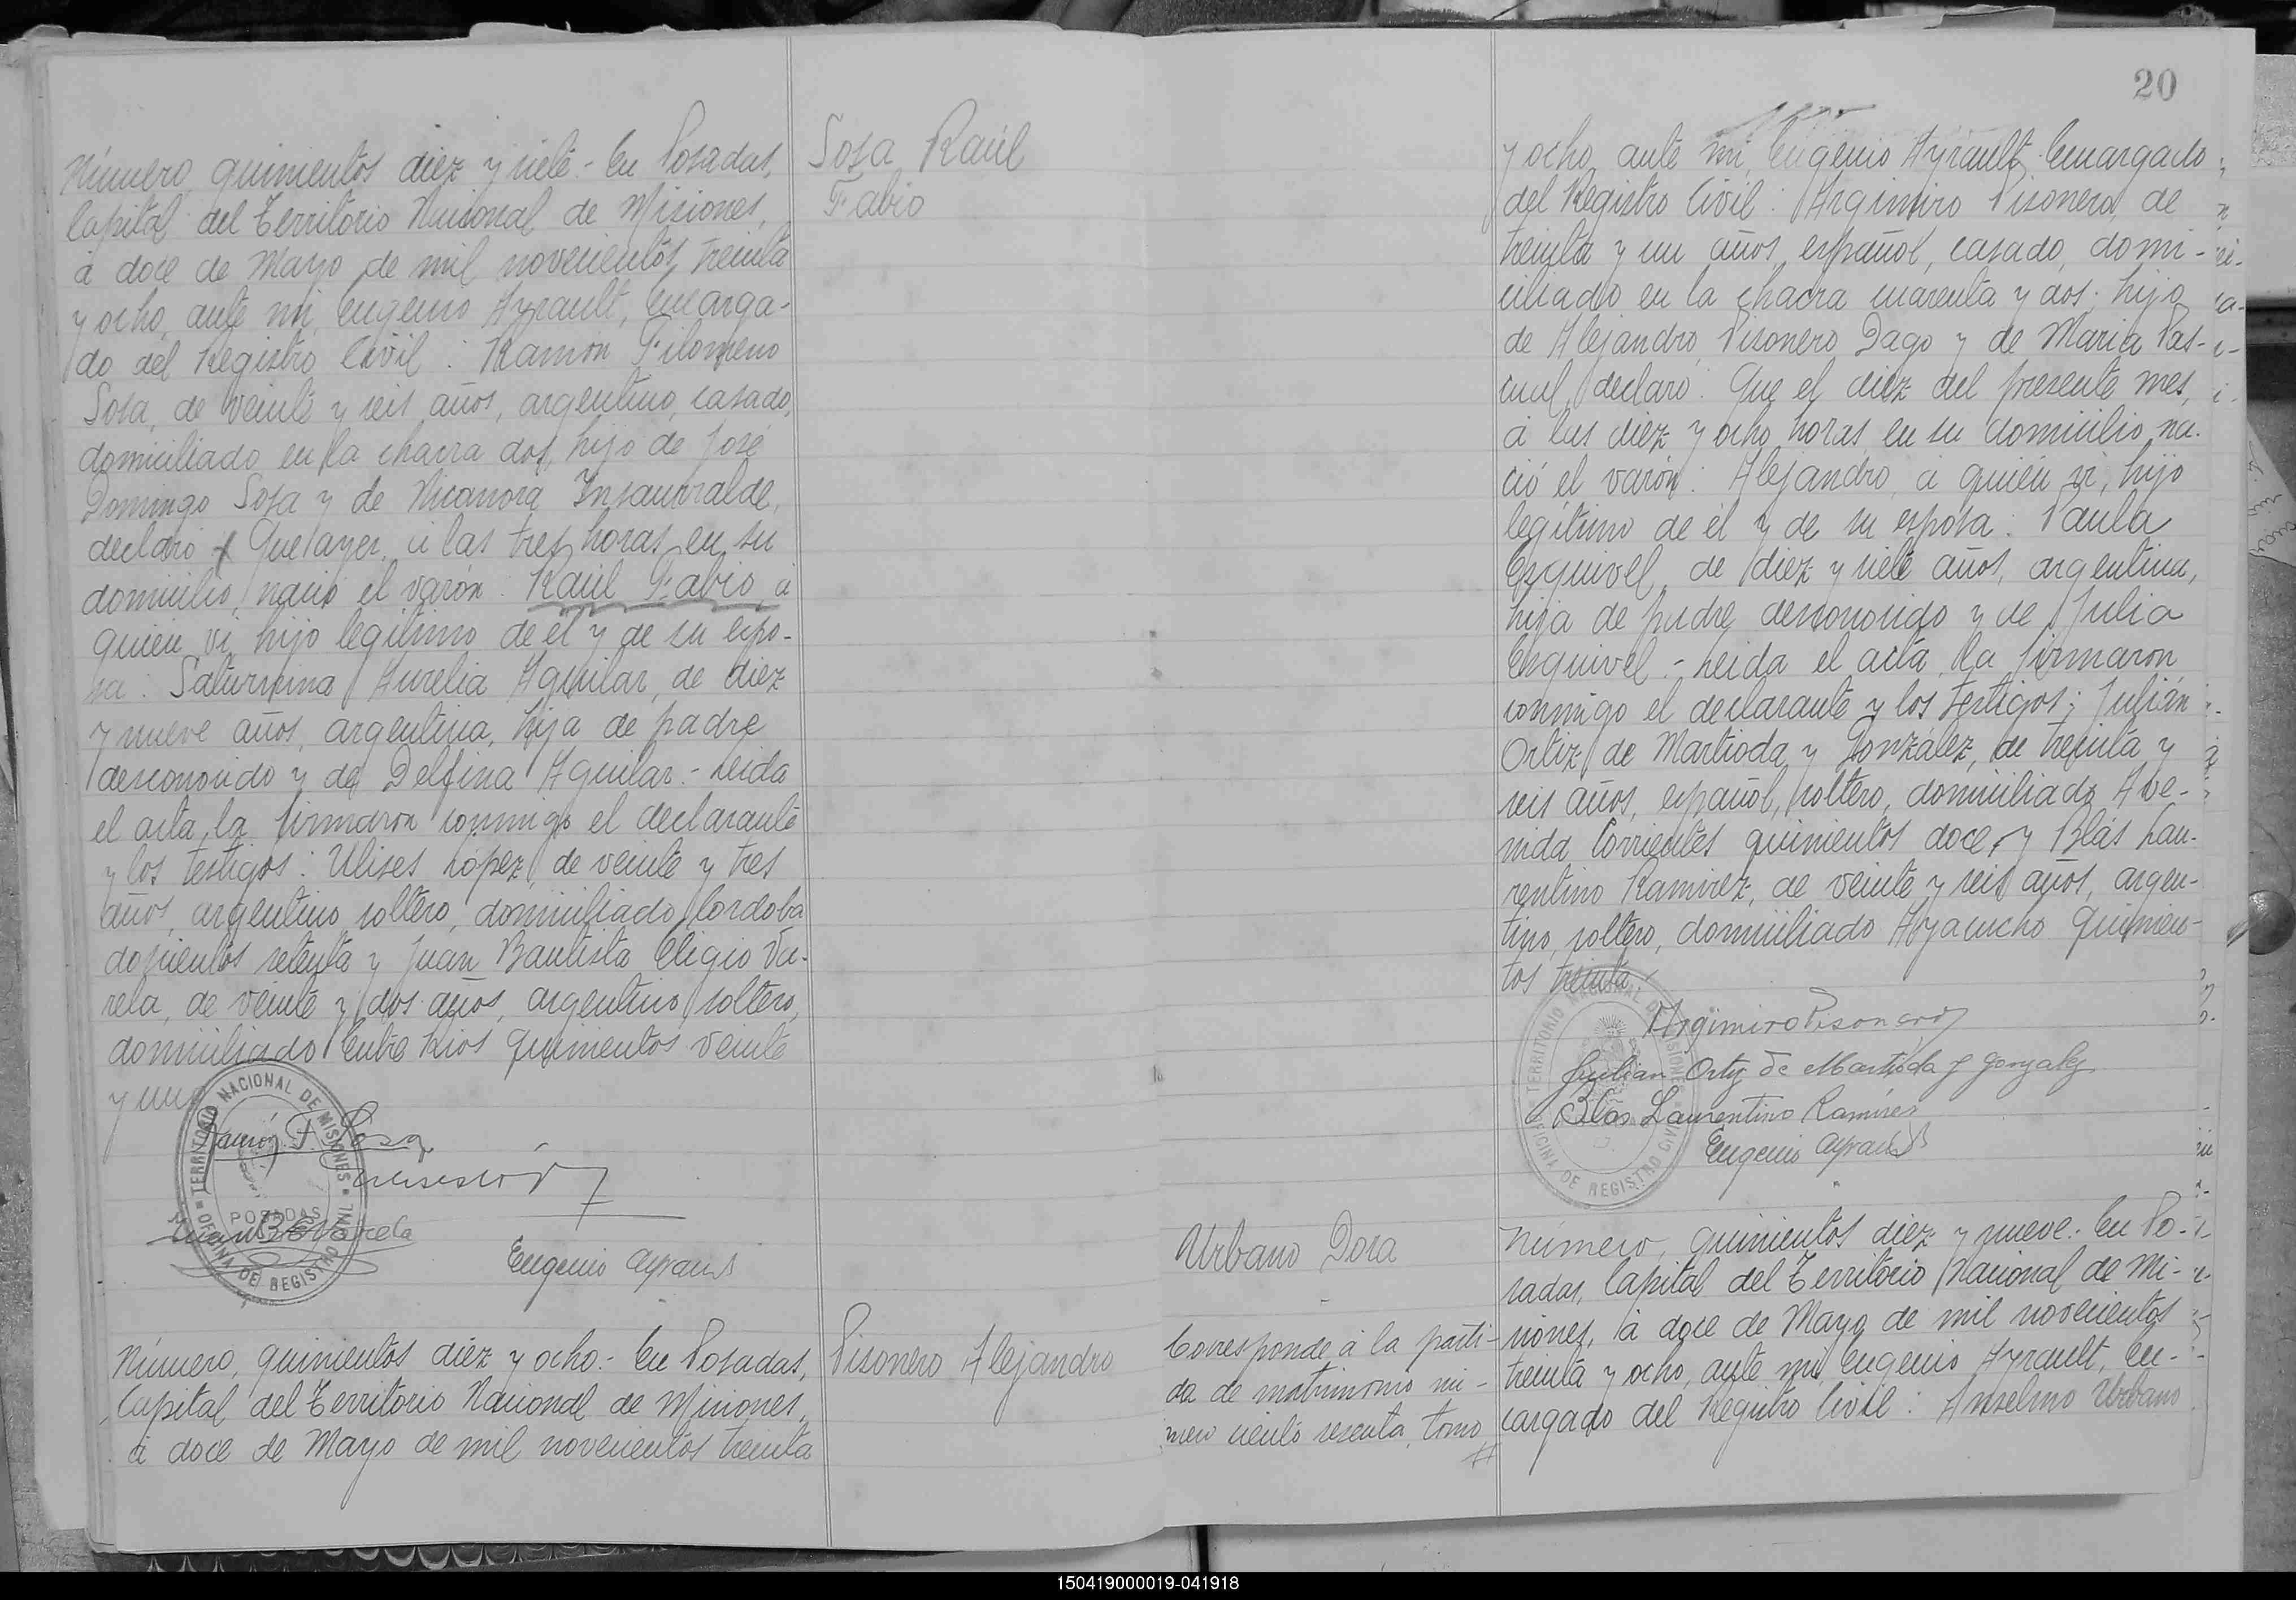 Número quinientos diez y siete.- En Posadas,
Capital del Territorio Nacional de Misiones,
á doce de Mayo de mil novecientos treinta
y ocho, ante mi, Eugenio Ayrault, Encarga-
do del Registro Civil: Ramón Filomeno
Sosa, de veinte y seis años, argentino, casado,
domiciliado en la chacra dos, hijo de José
Domingo Sosa y de Nicanora Insaurralde,
declaró: Que ayer, á las tres horas, en su
domicilio, nació el varón: Raúl Fabio, á
quién ví, hijo legítimo de él y de su espo-
sa: Saturnina Aurelia Aguilar, de diez
y nueve años, argentina, hija de padre
desconocido y de Delfina Aguilar.- Leida
el acta, la firmaron conmigo el declarante
y los testigos: Ulises López, de veinte y tres
años, argentino, soltero, domiciliado Cordoba
doscientos setenta y Juan Bautista Eligio Va-
rela, de veinte y dos años, argentino, soltero,
domiciliado Entre Rios quinientos veinte
y uno
Ramón F. Sosa
Juan B E Varela
Eugenio Ayrault
TERRITORIO NACIONAL DE MISIONES
POSADAS
OFICINA DE REGISTRO CIVIL
Sosa Raúl
Fabio
Número, quinientos diez y ocho.- En Posadas,
Capital del Territorio Nacional de Misiones,
á doce de Mayo de mil novecientos treinta
Pisonero Alejandro
20
y ocho, ante mi, Eugenio Ayrault, Encargado
del Registro Civil: Argimiro Pisonero, de
treinta y un años, español, casado, domi-
ciliado en la chacra cuarenta y dos, hijo
de Alejandro Pisonero Dago y de Maria Pas-
cual, declaró: Que el diez del presente mes,
á las diez y ocho horas, en su domicilio, na-
ció el varón: Alejandro, á quién ví, hijo
legítimo de él y de su esposa: Paula
Esquivel, de diez y siete años, argentina,
hija de padre desconocido y de Julia
Esquivel.- Leida el acta, la firmaron
conmigo el declarante y los testigos: Julián
Ortiz de Martioda y González, de treinta y
seis años, español, soltero, domiciliado Ave-
nida Corrientes quinientos doce, y Blás Lau-
rentino Ramirez, de veinte y seis años, argen-
tino, soltero, domiciliado Ayacucho quinien-
tos treinta
Argimiro Pisonero
Julian Ortiz de Martioda y Gonzalez
Blas Laurentino Ramirez
Eugenio Ayrault
TERRITORIO NACIONAL DE MISIONES
OFICINA DE REGISTRO CIVIL
Urbano Dora
Corresponde á la parti-
da de matrimonio nú-
mero ciento sesenta, tomo
Número, quinientos diez y nueve.- En Po-
sadas, Capital del Territorio Nacional de Mi-
siones, á doce de Mayo de mil novecientos
treinta y ocho, ante mi, Eugenio Ayrault, En-
cargado del Registro Civil: Anselmo Urbano
150419000019-041918